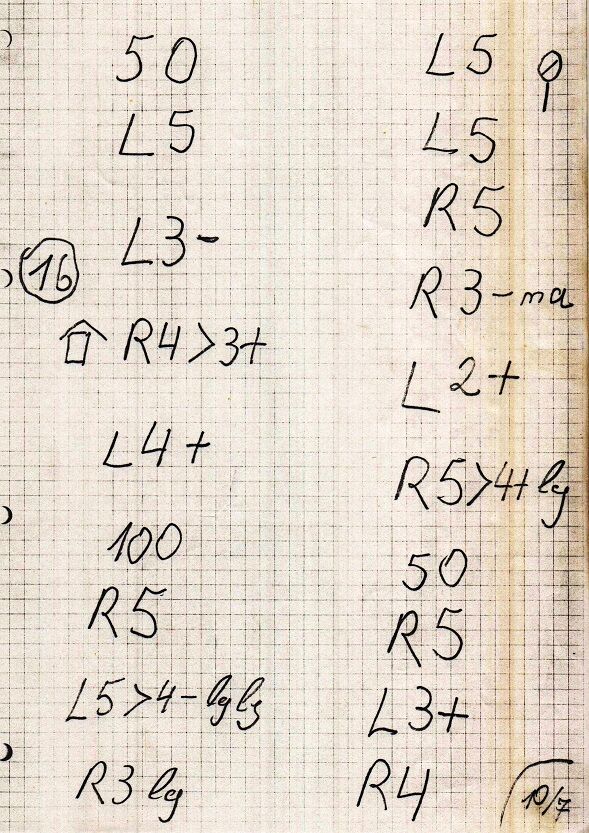 50
L5
L3-
16
R4>3+
L4+
100
R5
L5>4-lglg
R3 lg
L5
L5
R5
R3-ma
L2+
R5>4+ lg
50
R5
L3+
R4
10/7